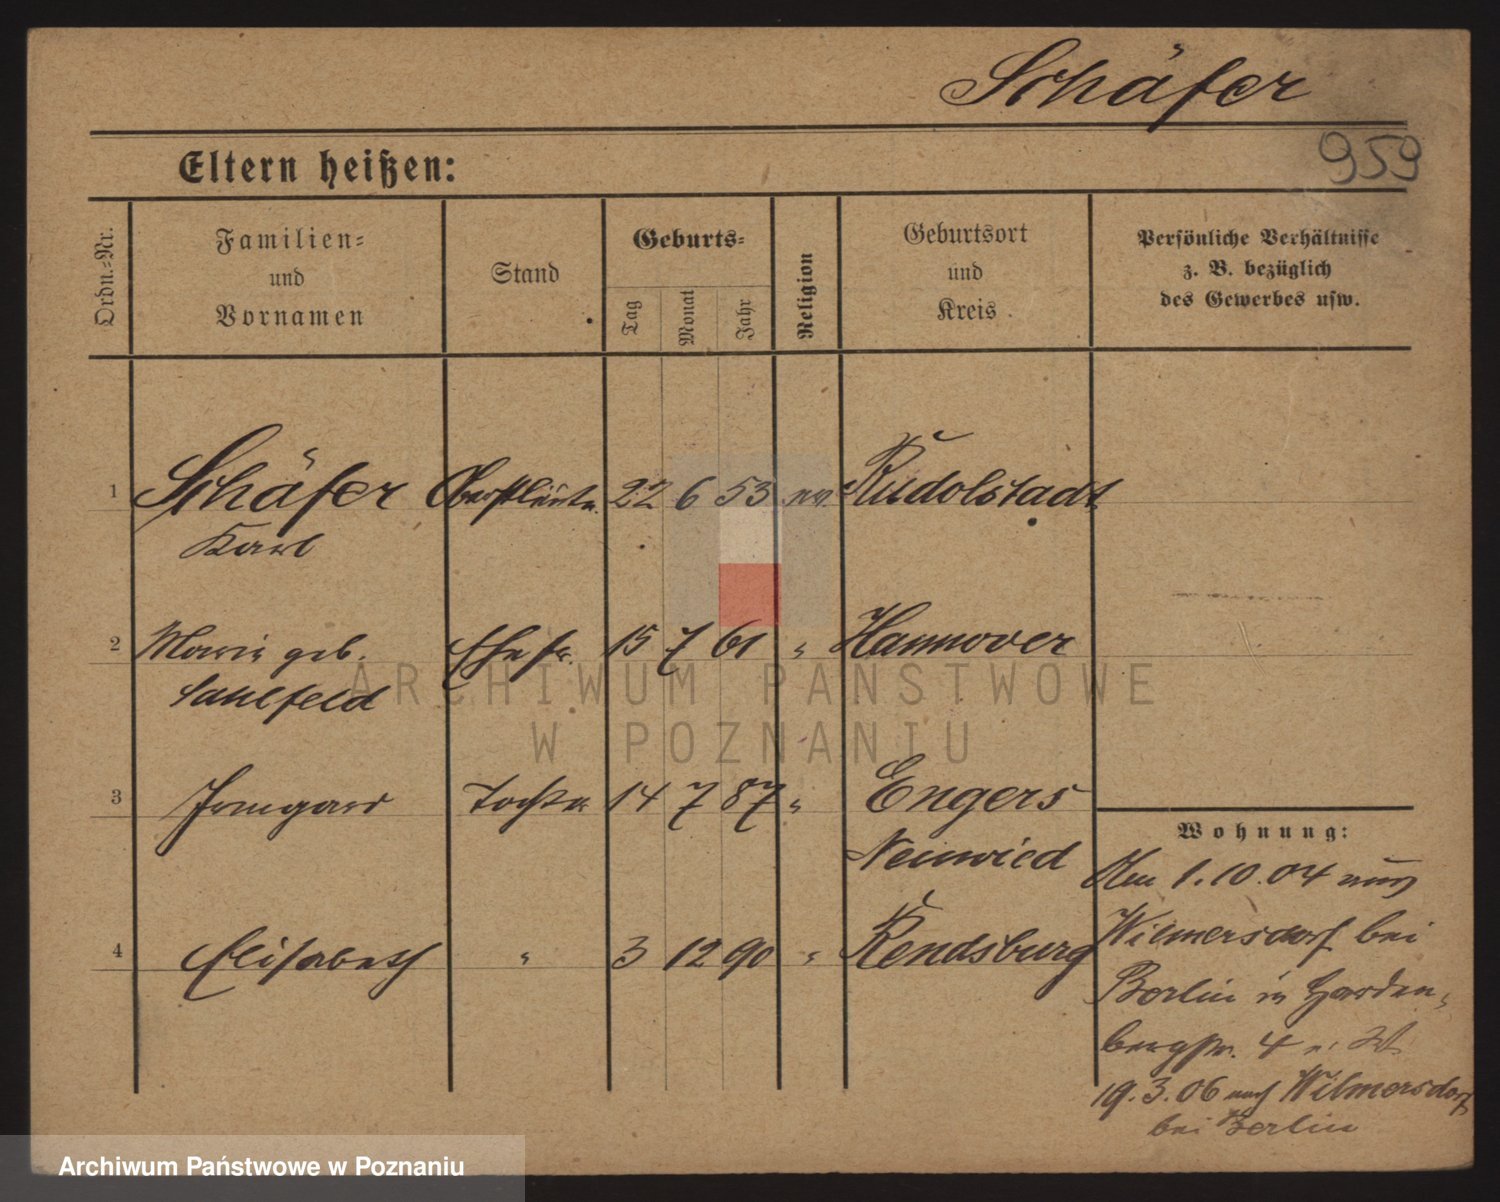 Schäfer
959
Eltern heißen:
Ordn.-Nr.
Familien-
und
Vornamen
Stand
Geburts-
Tag
Monat
Jahr
Religion
Geburtsort
und
Kreis
Persönliche Verhältnisse
z. B. bezüglich
des Gewerbes usw.
1 Schäfer Oberstleutn. 22 6 53 ev. Rudolstadt
Karl
2 Marie geb. Ehefr. 15 7 61 " Hannover
Sahlfeld
3 Irmgard Tochter 14 7 87 " Engers
Neuwied
4 Elisabeth " 3 12 90 " Rendsburg
Wohnung:
Am 1.10.04 aus
Wilmersdorf bei
Berlin in Harden-
bergstr. 4
19.3.06 nach Wilmersdorf
bei Berlin
ARCHIWUM PAŃSTWOWE
W POZNANIU
Archiwum Państwowe w Poznaniu